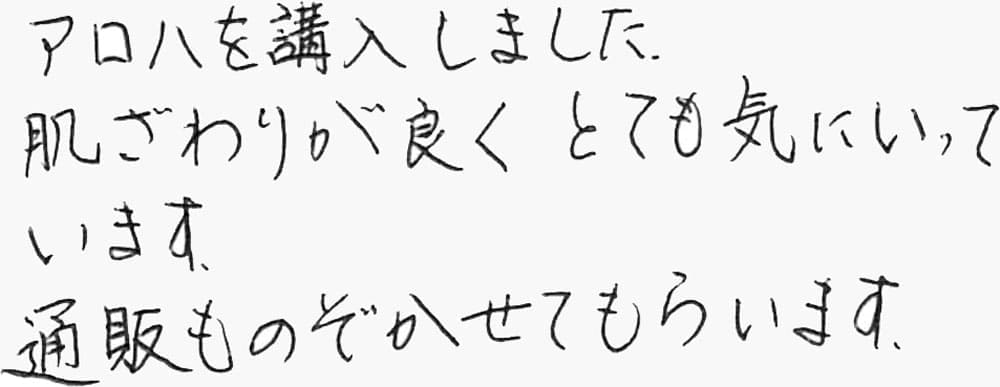 アロハを講入しました.
肌ざわりが良く とても気にいって
います.
通販ものぞかせてもらいます.